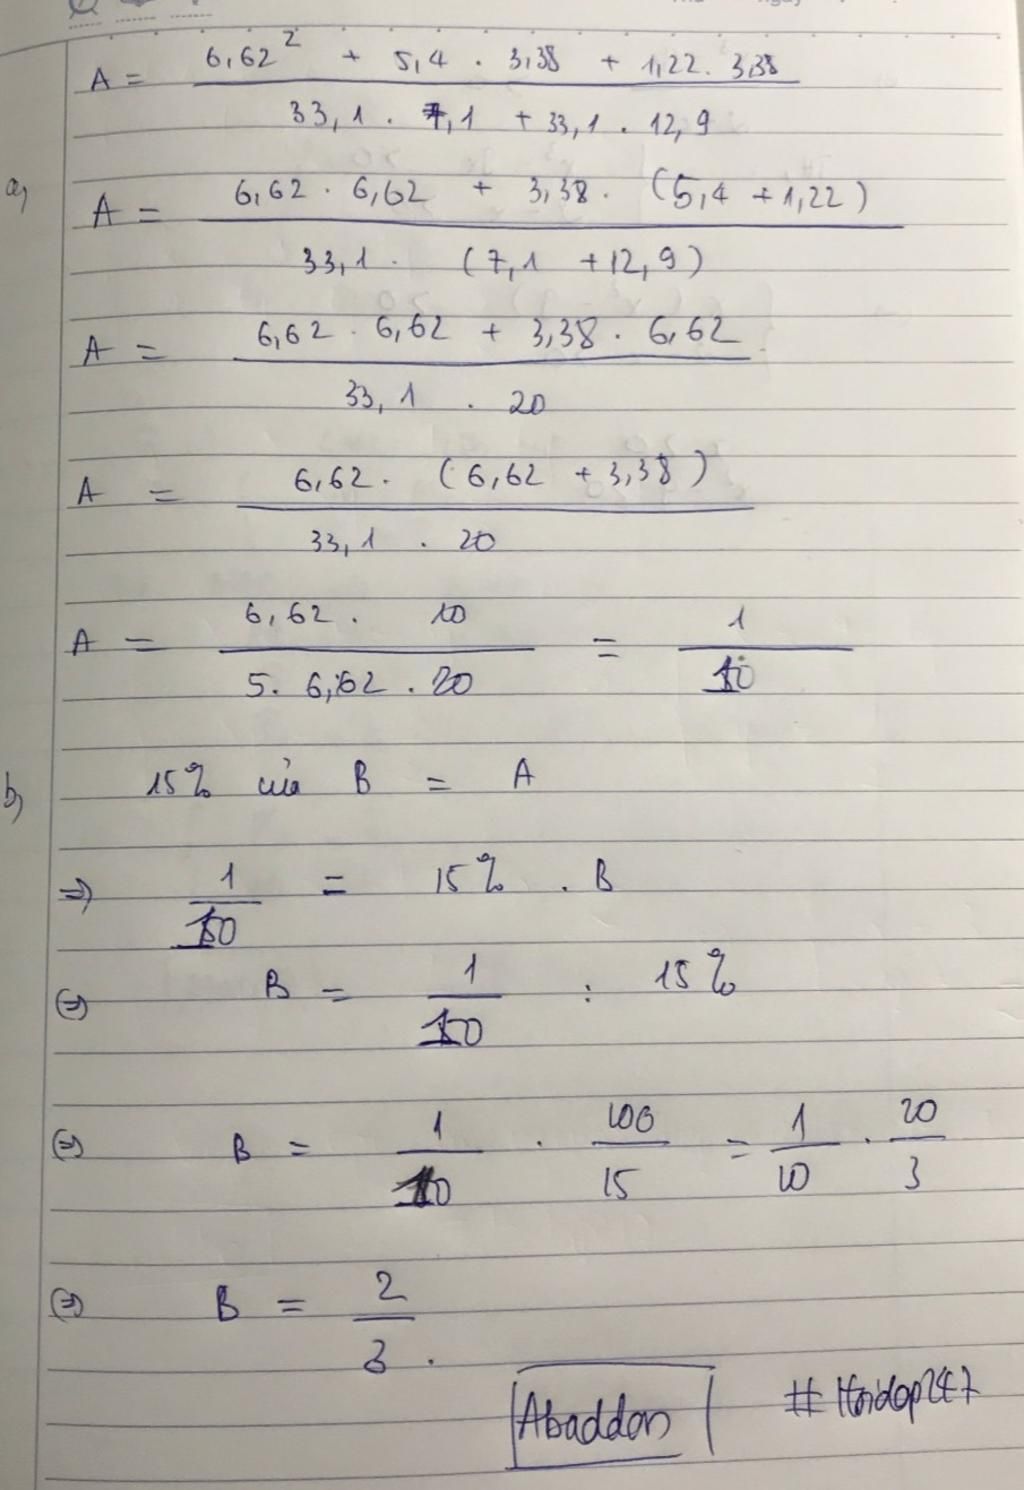 A = (6,62² + 5,4 . 3,38 + 1,22 . 3,38) / (33,1 . 7,1 + 33,1 . 12,9)
a, A = (6,62 . 6,62 + 3,38 . (5,4 + 1,22)) / (33,1 . (7,1 + 12,9))
A = (6,62 . 6,62 + 3,38 . 6,62) / (33,1 . 20)
A = (6,62 . (6,62 + 3,38)) / (33,1 . 20)
A = (6,62 . 10) / (5 . 6,62 . 20) = 1/10
b, 15% của B = A
=> 1/10 = 15% . B
(=) B = 1/10 : 15%
(=) B = 1/10 . 100/15 = 1/10 . 20/3
(=) B = 2/3 .
Abaddon # Hoidap247